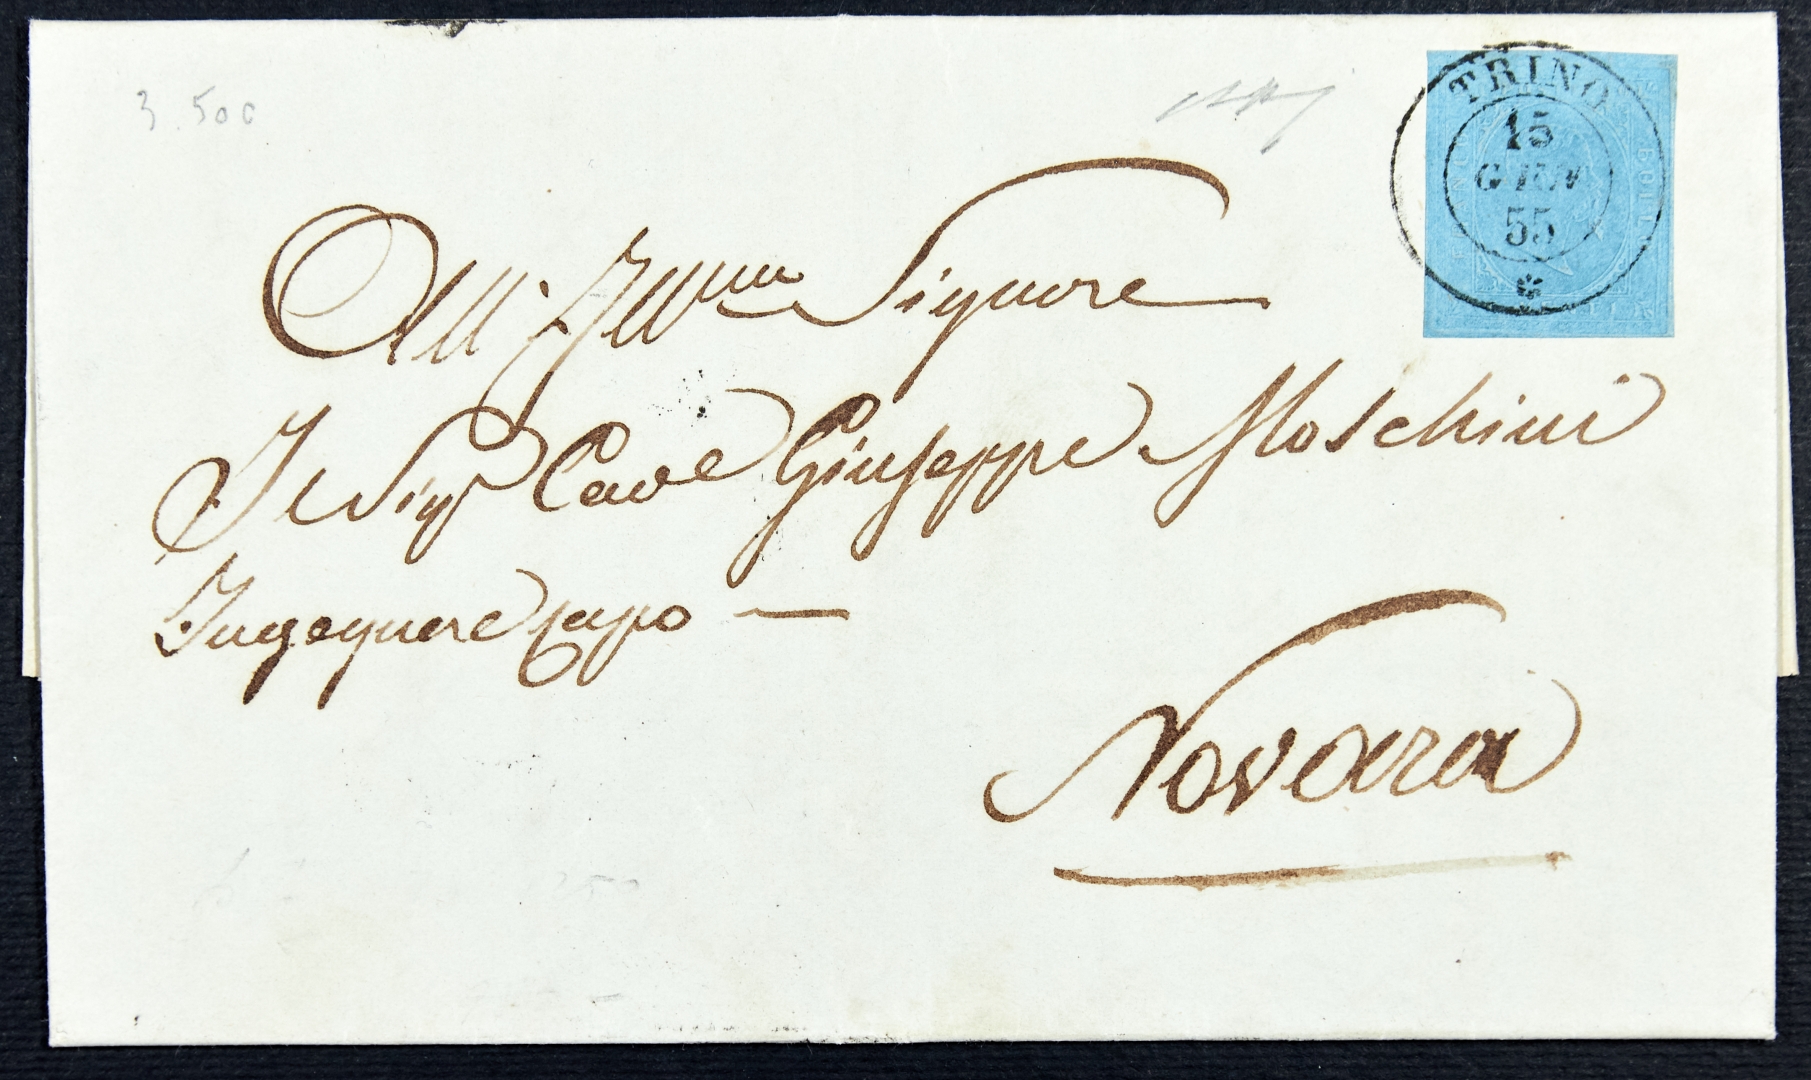 3.500
TRINO
15
GIUN
55
All' Illmo Signore
Il Sigr Cave Giuseppe Moschini
Ingegnere capo —
Novara